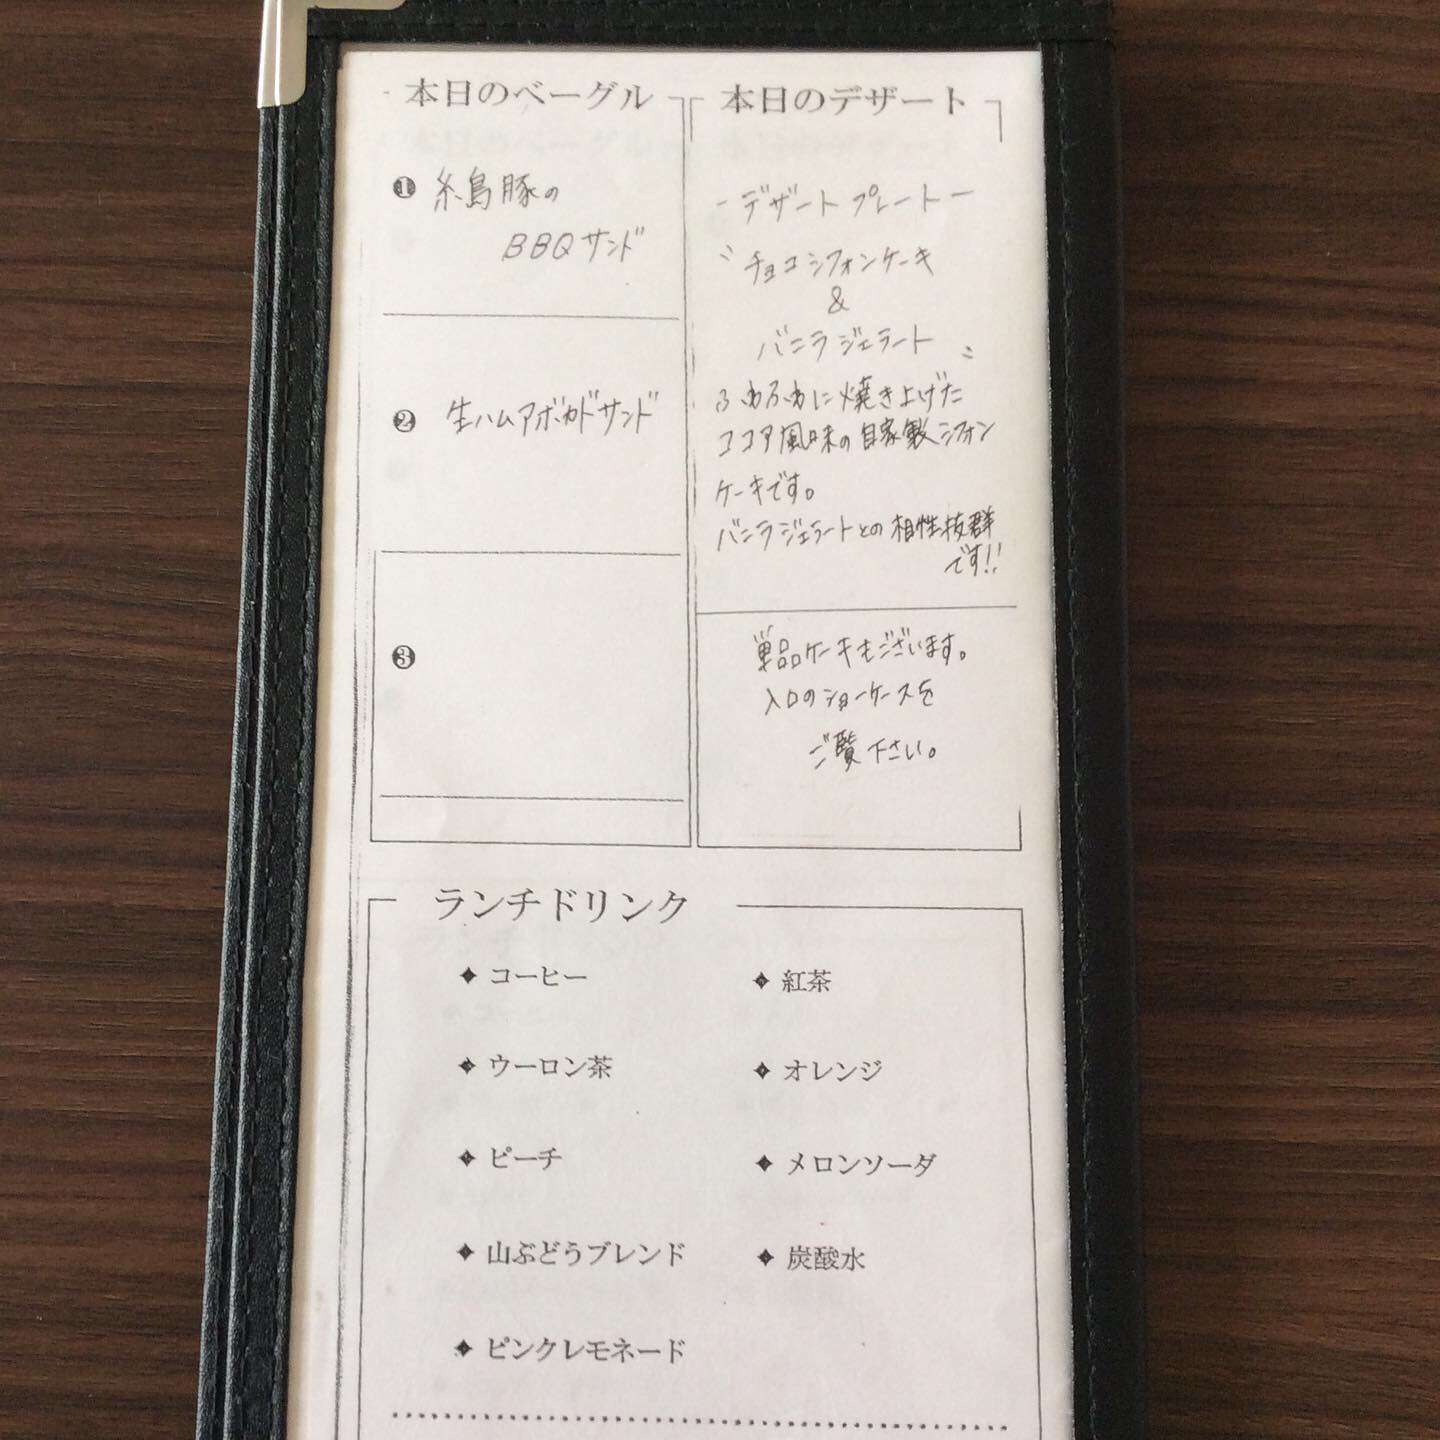 本日のベーグル
❶ 糸島豚の
BBQサンド
❷ 生ハムアボカドサンド
❸
本日のデザート
-デザートプレート-
〝チョコシフォンケーキ
&
バニラジェラート〟
ふわふわに焼き上げた
ココア風味の自家製シフォン
ケーキです。
バニラジェラートとの相性抜群
です!!
単品ケーキもございます。
入口のショーケースを
ご覧下さい。
ランチドリンク
✦ コーヒー
✦ 紅茶
✦ ウーロン茶
✦ オレンジ
✦ ピーチ
✦ メロンソーダ
✦ 山ぶどうブレンド
✦ 炭酸水
✦ ピンクレモネード